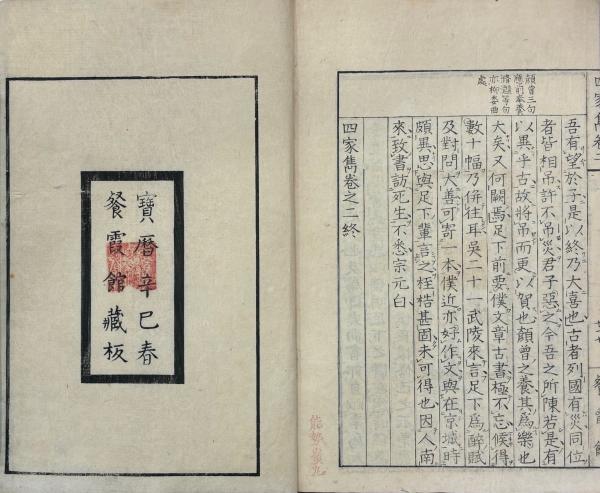 四家雋卷二
餐霞館
顏曾三句
應前奉養
等句
亦柳委曲
處
吾有望於子是以終乃大喜也古者列國有災同位
者皆相吊許不吊災君子惡之今吾之所陳若是有
以異乎古故將吊而更以賀也顏曾之養其爲樂也
大矣又何闕焉足下前要僕文章古書極不忘候得
數十幅乃倂往耳吳二十一武陵來言足下爲醉賦
及對問大善可寄一本僕近亦好作文與在京城時
頗異思與足下輩言之桎梏甚固未可得也因人南
來致書訪死生不悉宗元白
四家雋卷之二終
寶曆辛巳春
餐霞館藏板